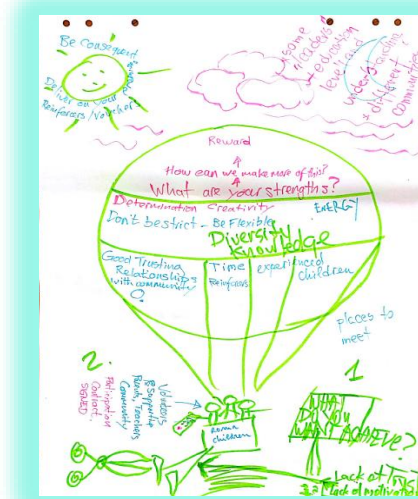 Be Consequent
Deliver on your
Reinforcers/Vouchers
some
leaders
education
level and
understanding
different
communities
Reward
How can we make more of this?
What are your strengths?
Determination Creativity
ENERGY
Don't be strict - Be Flexible
Diversity
Knowledge
Good Trusting
Relationship
with community
Time
Reinforcers
experienced
children
places to
meet
2.
Participation
Contract
SIGNED
Volunteers
Parents, Teachers
Community
Roma
children
1
WHAT
DO YOU
WANT ACHIEVE?
Lack of
Lack of motivation